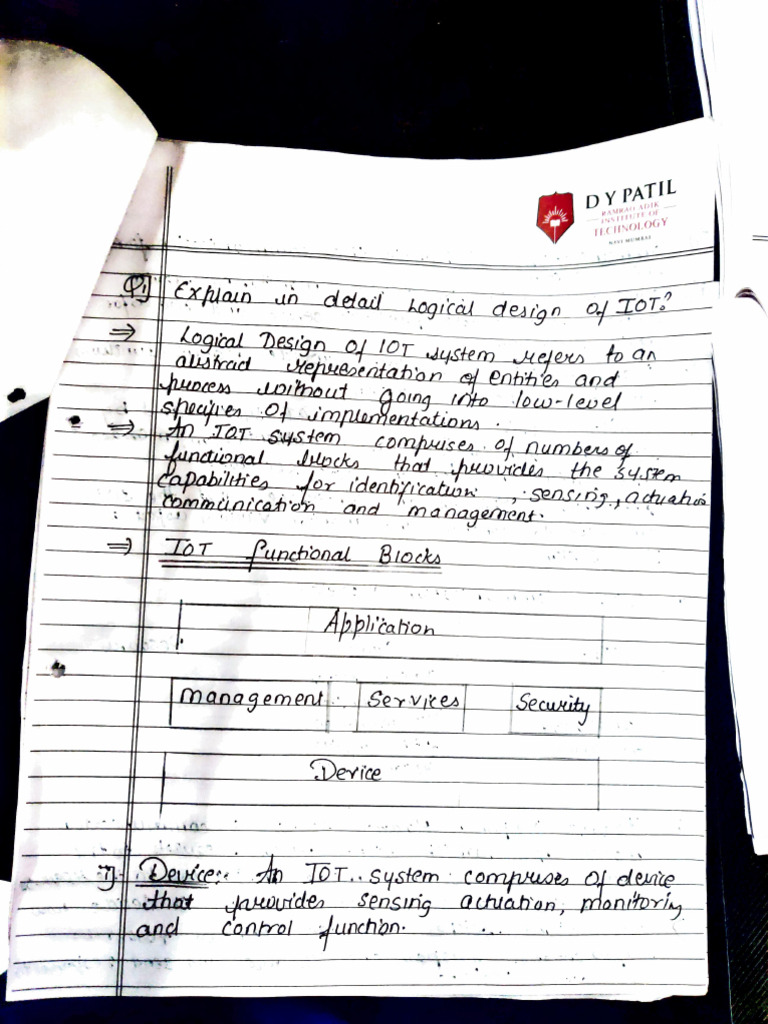 D Y PATIL
RAMRAO ADIK
INSTITUTE OF
TECHNOLOGY
NAVI MUMBAI
Q1] Explain in detail Logical design of IOT?
⇒ Logical Design of IOT system refers to an
abstract representation of entities and
process without going into low-level
specifies of implementations.
⇒ An IOT system comprises of numbers of
functional blocks that provides the system
capabilities for identification, sensing, actuation
communication and management.
⇒ IOT functional Blocks
Application
management Services Security
Device
1] Device: An IOT system comprises of device
that provides sensing actuation, monitoring
and control function.